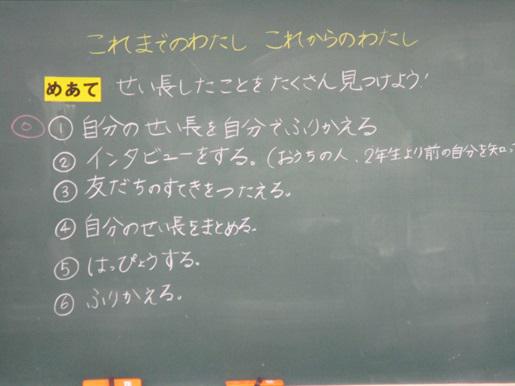 これまでのわたし これからのわたし
めあて せい長したことをたくさん見つけよう!
○ ① 自分のせい長を自分でふりかえる
② インタビューをする。(おうちの人、2年生より前の自分を知っ
③ 友だちのすてきをつたえる。
④ 自分のせい長をまとめる。
⑤ はっぴょうする。
⑥ ふりかえる。